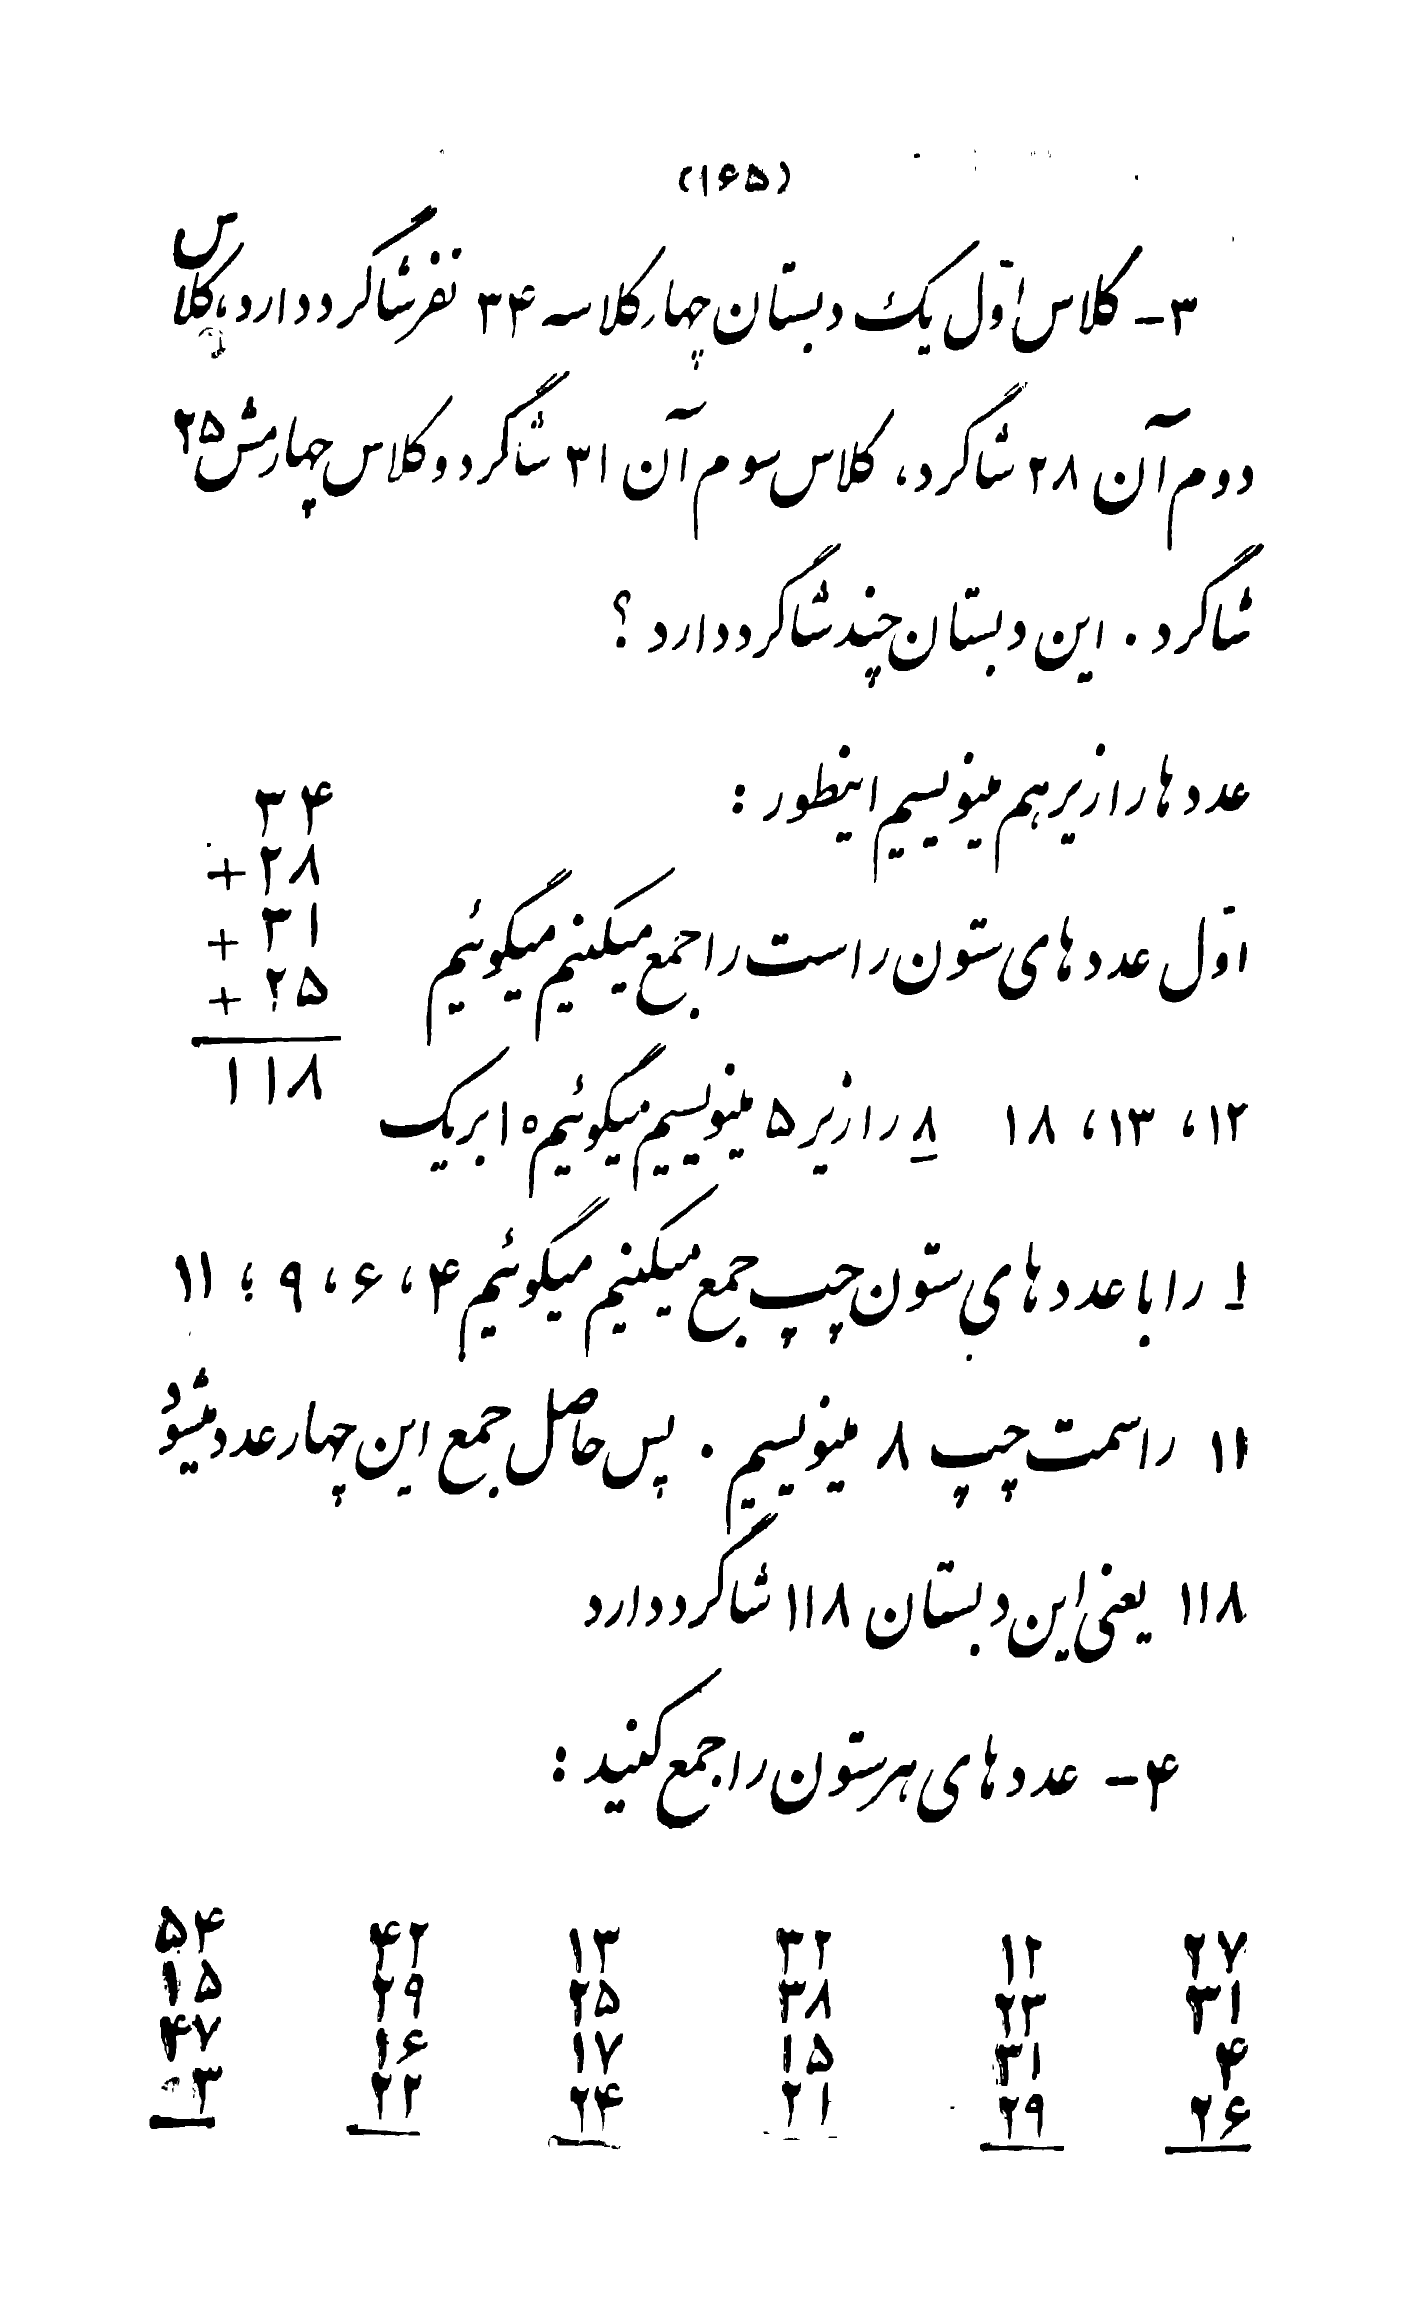 (۱۶۵)
۳- کلاس اوّل یک دبستان چهار کلاسه ۳۴ نفر شاگرد دارد، کلاس
دوم آن ۲۸ شاگرد، کلاس سوم آن ۳۱ شاگرد و کلاس چهارمش ۲۵
شاگرد. این دبستان چند شاگرد دارد ؟
عددها را زیر هم مینویسیم اینطور :
۳۴
+ ۲۸
+ ۳۱
+ ۲۵
۱۱۸
اوّل عددهای ستون راست را جمع میکنیم میگوئیم
۱۲، ۱۳، ۱۸ ۸ را زیر ۵ مینویسیم میگوئیم ده بر یک
۱ را با عددهای ستون چپ جمع میکنیم میگوئیم ۴، ۶، ۹ ؛ ۱۱
۱۱ را سمت چپ ۸ مینویسیم . پس حاصل جمع این چهار عدد میشود
۱۱۸ یعنی این دبستان ۱۱۸ شاگرد دارد
۴- عددهای هر ستون را جمع کنید :
۲۷ ۱۲ ۳۲ ۱۳ ۴۲ ۵۴
۳۱ ۲۳ ۳۸ ۲۵ ۲۹ ۱۵
۴ ۳۱ ۱۵ ۱۷ ۱۶ ۴۷
۲۶ ۲۹ ۲۱ ۲۴ ۲۲ ۳